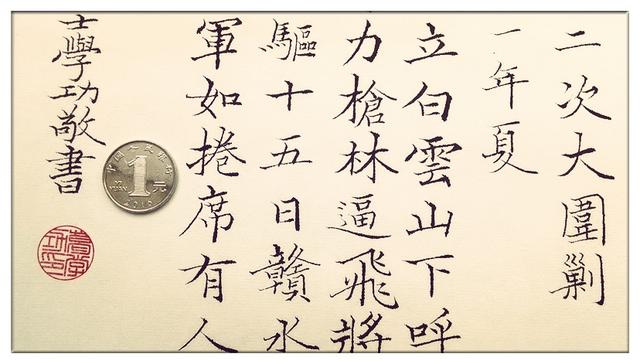 二次大圍剿
一年夏
立白雲山下呼
力槍林逼飛將
驅十五日贛水
軍如捲席有人
士學功敬書
中国人民银行
1元
YI YUAN
2010